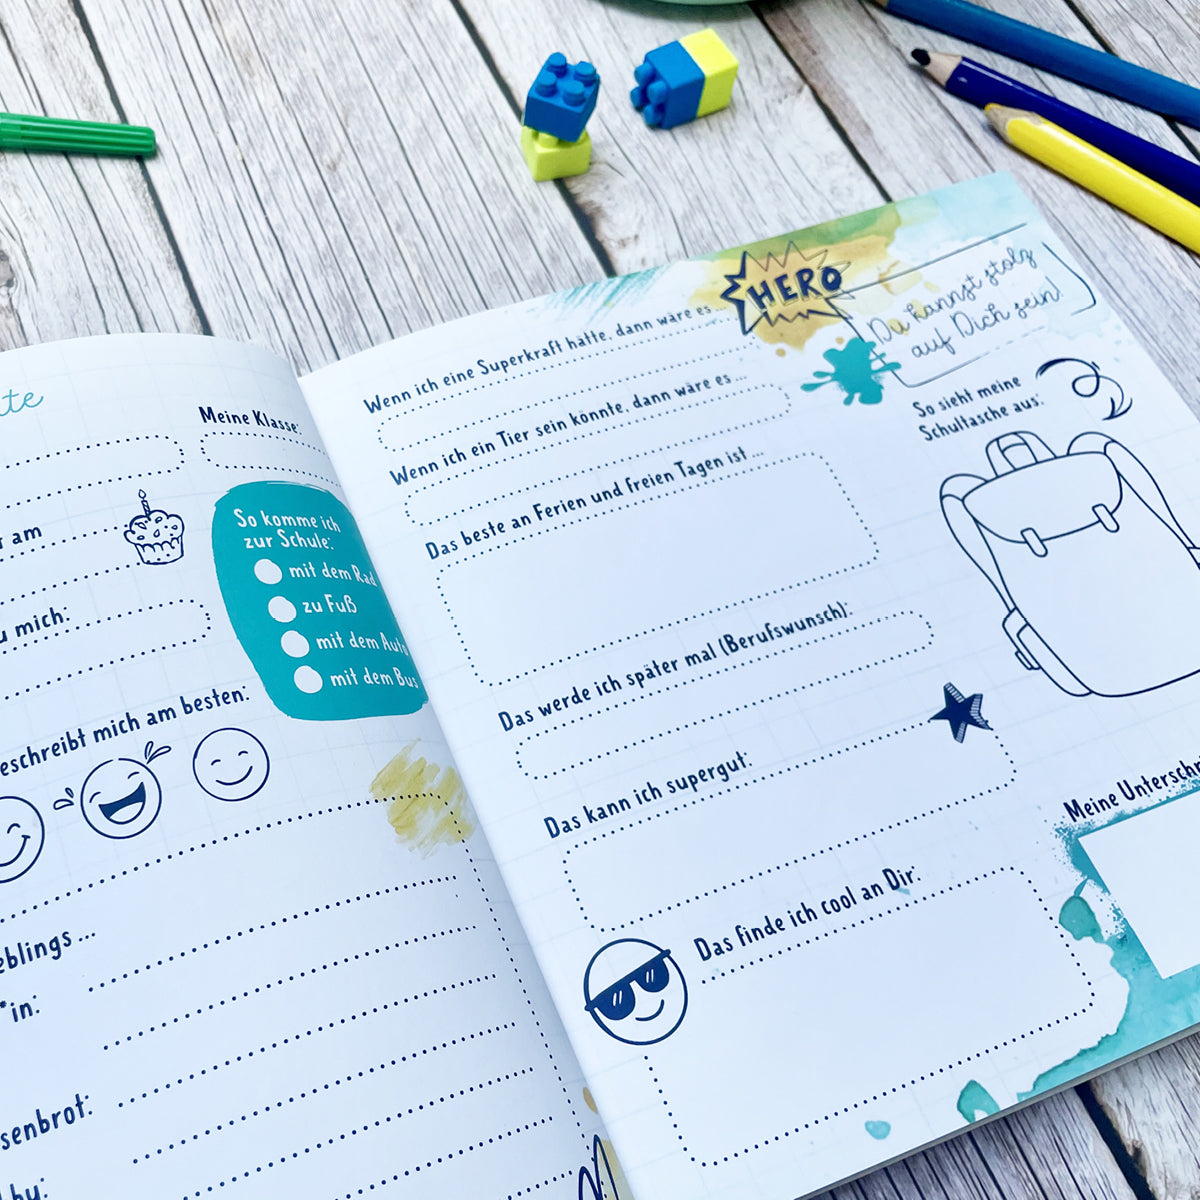 Meine Klasse:
am
mich:
So komme ich
zur Schule:
mit dem Rad
zu Fuß
mit dem Auto
mit dem Bus
mich am besten:
HERO
Du kannst stolz
auf Dich sein!
Wenn ich eine Superkraft hätte, dann wäre es ...
Wenn ich ein Tier sein könnte, dann wäre es ...
Das beste an Ferien und freien Tagen ist ...
Das werde ich später mal (Berufswunsch):
Das kann ich supergut:
Das finde ich cool an Dir:
So sieht meine
Schultasche aus:
Meine